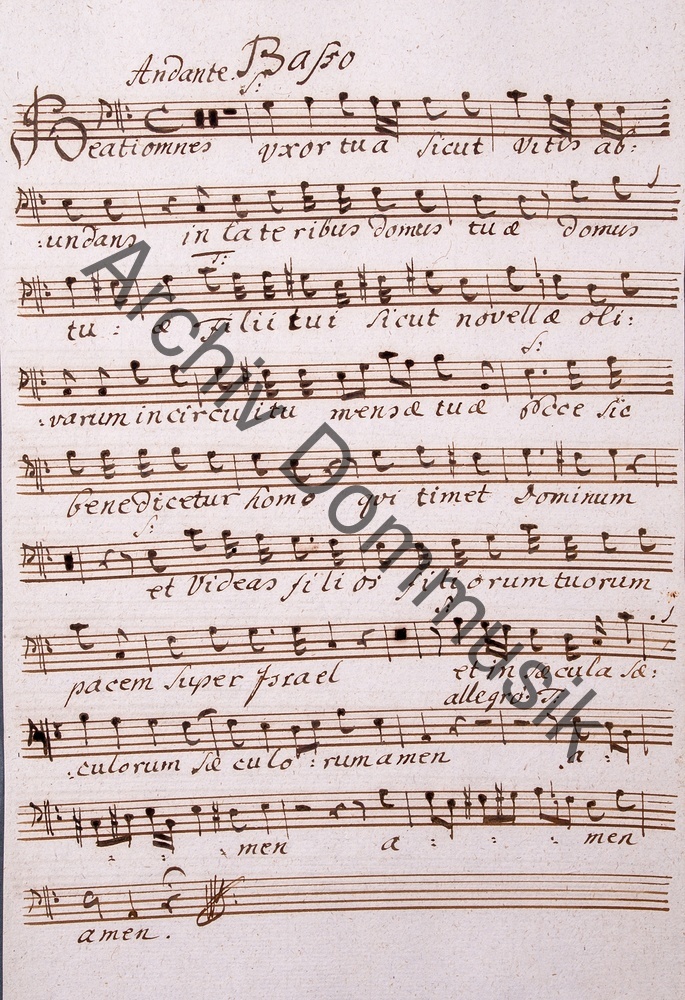 Andante. Basso
S:
Beati omnes uxor tua sicut Vitis ab:
:undans in lateribus domus tuæ domus
T:
tu : æ Filii tui sicut novellæ oli:
S:
:varum in circuitu mensæ tuæ Ecce sic
benedicetur homo qvi timet Dominum
S:
et Videas filios filiorum tuorum
S:
pacem super Israel et in sæcula sæ:
allegro: T:
:culorum sæ culo : rum amen a :
: : : men a : : : men
amen.
Archiv Dommusik